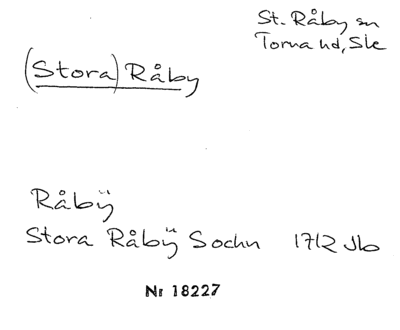 St. Råby sn
Torna hd, Ske
(Stora) Råby
Råbÿ
Stora Råbÿ Sochn 1712 Jb
Nr 18227